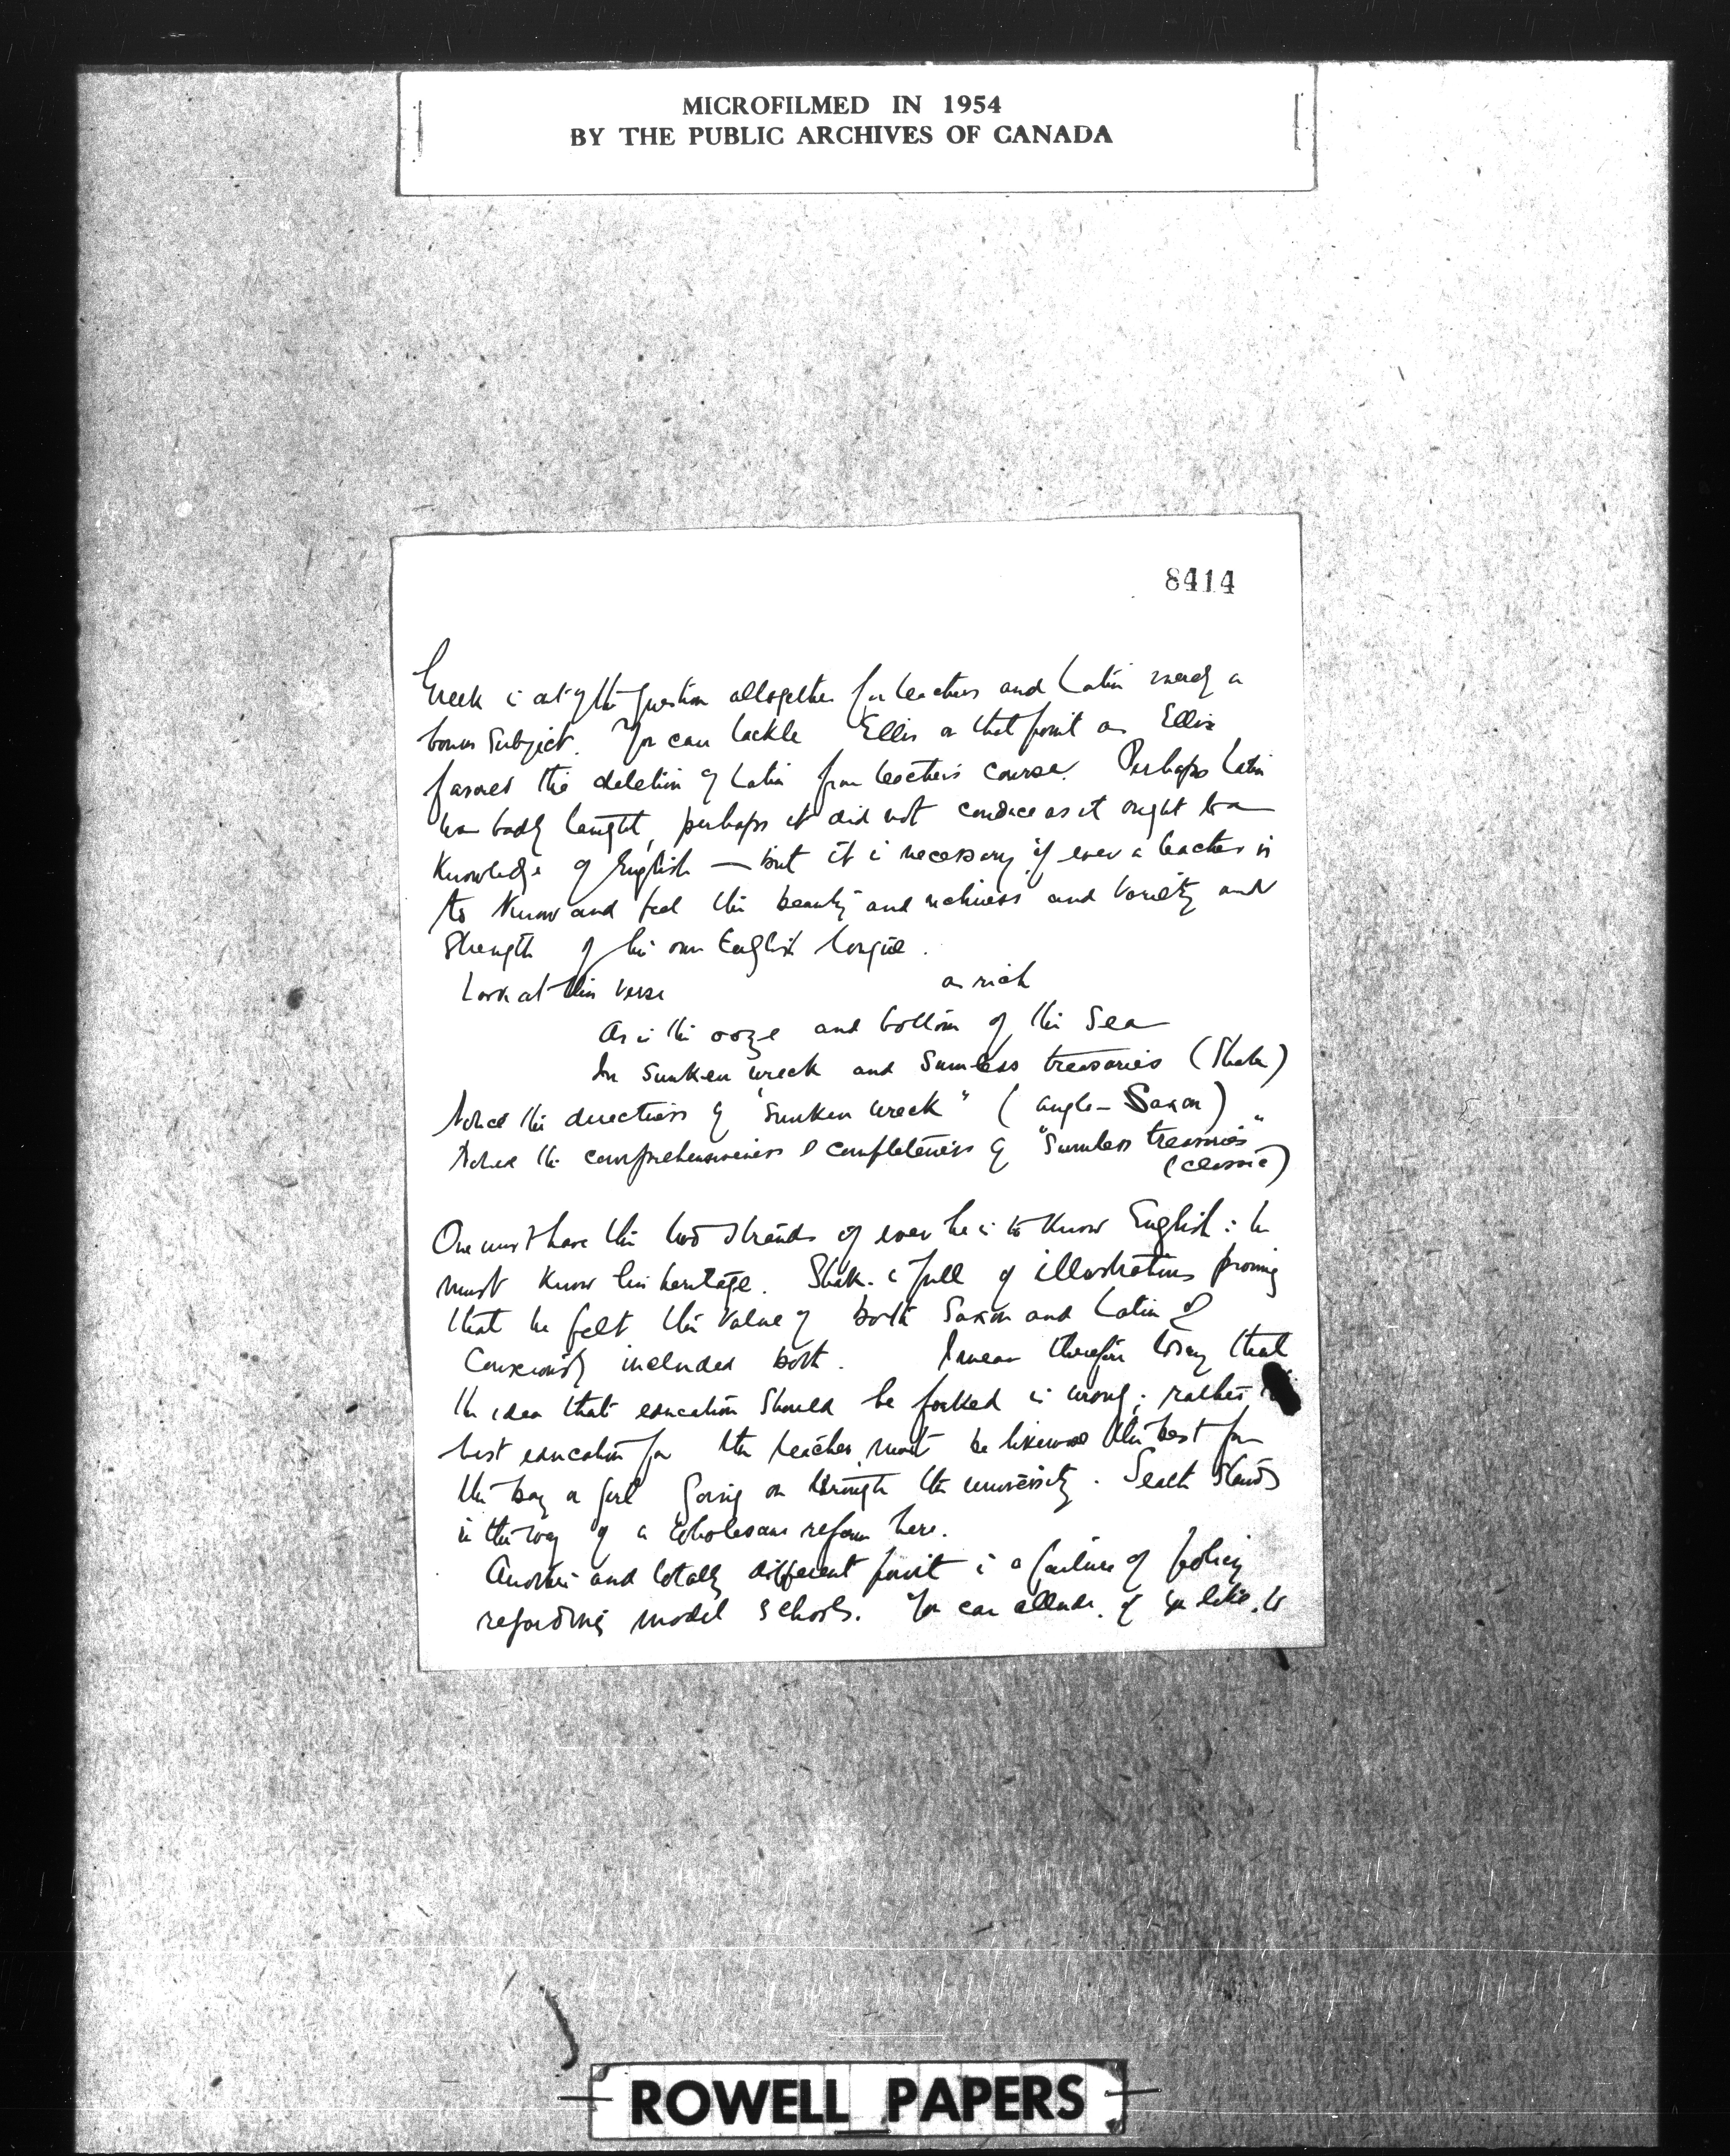 MICROFILMED IN 1954
BY THE PUBLIC ARCHIVES OF CANADA
8414
Greek is out of the question altogether for teachers and Latin merely a
bonus subject. You can tackle Ellis on that point as Ellis
favored the deletion of Latin from teachers course. Perhaps Latin
was badly taught, perhaps it did not conduce as it ought to a
knowledge of English — but it is necessary if ever a teacher is
to know and feel the beauty and richness and variety and
strength of his own English tongue.
Look at this verse as rich
As is the ooze and bottom of the Sea
In sunken wreck and sumless treasuries (Shake)
Notice the directness of "sunken wreck" (Anglo-Saxon)
Notice the comprehensiveness & completeness of "Sumless treasuries"
(classic)
One must have the two strands if ever he is to know English: he
must know his heritage. Shak. is full of illustrations proving
that he felt the value of both Saxon and Latin &
consciously included both. I mean therefore to say that
the idea that education should be forked is wrong; rather
best education for the teacher must be likewise the best for
the boy or girl going on through the university. Seath stands
in the way of a wholesome reform here.
Another and totally different point is a failure of policy
regarding model schools. You can allude, if you like, to
ROWELL PAPERS